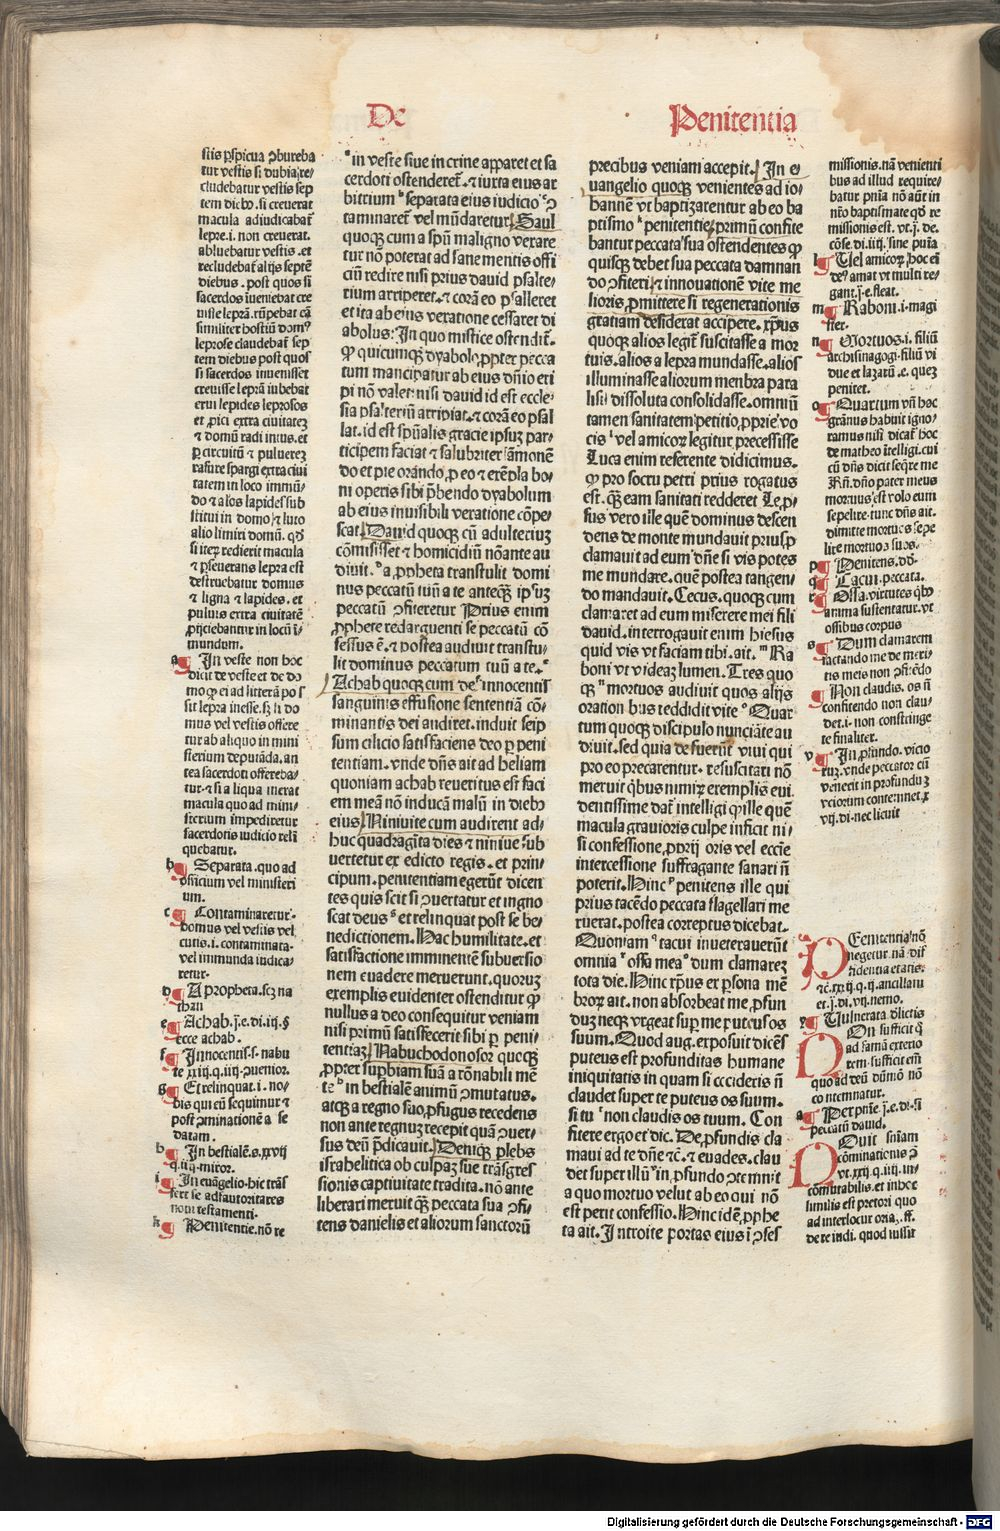 De Penitentia
stis pspicua ꝯbureba
tur vestis si dubia/re/
cludebatur vestis sep
tem dieb9.si creuerat
macula adiudicabat̃
lepre.i. non creuerat.
abluebatur vestis.et
recludebat̃ alijs septẽ
diebus. post quos si
sacerdos inueniebat cre
uisse leprã.
similiter hostiũ dom9
leprose claudebat̃ sep
tem diebus post quos
si sacerdos inuenisset
creuisse leprã iubebat
erui lepides leprosos
et ꝓici extra ciuitatez
⁊ domũ radi intus.et
ꝑ circuitũ ⁊ puluerez
rasure spargi extra ciui
tatem in loco immũ/
do ⁊ alios lapides sub
stitui in domo/⁊ luto
alio liniri domũ. qd̓
si iteꝝ redierit macula
⁊ ꝑseuerans lepra est
destruebatur domus
⁊ ligna ⁊ lapides.et
puluis extra ciuitatẽ
ꝓijciebantur in locũ ĩ/
mundum.
a In veste non hoc
dicit de veste et de do
mo qꝛ ei ad litterã pos
sit lepra inesse.sz li do
mus vel vestis offere
tur ab aliquo in mini
sterium deputãda.an
tea sacerdoti offereba/
tur.⁊ si aliqua inerat
macula quo ad mini/
sterium impediretur
sacerdotis iudicio reli
quebatur.
b Separata.quo ad
officium vel ministeri
um.
c Contaminaretur.
domus vel vestis vel
cutis.i. contaminata.
vel immunda iudica/
retur.
d A propheta.scz na
than
e Achab.j.e.di.iij.§
ecce achab.
f Innocentis.s.nabu
te xxiij.q.iiij ꝯuenior.
g Et relinquat.i.no/
bis qui eũ sequimur ⁊
post ꝯminationẽ a se
datam.
h In bestialẽ.s.xxvij
q.ij.q.miror.
i In euãgelio.hic trãs
fert se ad auctoritates
noui testamenti.
k Penitentie.nõ re
in veste siue in crine apparet et sa
cerdoti ostenderet̃.⁊ iuxta eius ar
bitrium separata eius iudicio ꝯ
taminaret̃ vel mũdaretur. Saul
quoqꝫ cum a spũ maligno vexare
tur nõ poterat ad sane mentis offi
ciũ redire nisi prius dauid psalte/
rium arriperet.⁊ corã eo psalleret
et ita ab eius vexatione cessaret di
abolus. In quo mistice ostendit̃.
ꝙ quicumqꝫ dyabolo ꝓpter pecca
tum mancipatur ab eius dñio eri
pi nõ valet.nisi dauid id est eccle/
sia psalteriũ arripiat.⁊ corã eo psal
lat.id est spũalis gracie ipsuz par/
ticipem faciat ⁊ salubriter /amonẽ
do et pie orãndo ꝓ eo ⁊ exẽpla bo/
ni operis sibi p̃bendo dyabolum
ab eius inuisibili vexatione cõpe/
scat. Dauid quoqꝫ cũ adulteriuz
cõmisisset ⁊ homicidiũ nõante au
diuit. a ꝓpheta transtulit domi
nus peccatũ tuũ a te anteqꝫ ipsuz
peccatũ ꝯfiteretur Prius enim
ꝓphete redarguenti se peccatũ cõ
fessus ẽ.⁊ postea audiuit transtu/
lit dominus peccatum tuũ a te.
Achab quoqꝫ cum de innocentis
sanguinis effusione sententiã cõ/
minantis dei audiret.induit seip
sum cilicio satisfaciens deo ꝑ peni
tentiam.vnde dñs ait ad heliam
quoniam achab reueritus est faci
em meã nõ inducã malũ in dieb9
eius. Niniuite cum audirent ad/
huc quadragĩta dies ⁊ niniue sub
uertetur ex edicto regis.et prin/
cipum.penitentiam egerũt dicen
tes quis scit si ꝯuertatur et ingno
scat deus et relinquat post se be/
nedictionem.Hac humilitate.et
satisfactione imminentẽ subuersio
nem euadere meruerunt.quoruz
exemplis euidenter ostenditur ꝙ
nullus a deo consequitur veniam
nisi primũ satisfecerit sibi ꝑ peni/
tentiaz. Nabuchodonosor quoqꝫ
ꝓpter supbiam suã a rõnabili mẽ
te in bestialẽ animũ ꝯmutatus.
atqꝫ a regno suo ꝓfugus recedens
non ante regnuz recepit quã ꝯuer/
sus deũ p̃dicauit. Deniqꝫ plebs
israhelitica ob culpaz sue trãsgres
sionis captiuitate tradita.nõ ante
liberari meruit qꝫ peccata sua ꝯfi/
tens danielis et aliorum sanctorũ
precibus veniam accepit. In e/
uangelio quoqꝫ venientes ad io/
bannẽ vt baptizarentur ab eo ba
ptismo penitentie.primũ confite
bantur peccata sua ostendentes ꝙ
quisqꝫ debet sua peccata damnan
do ꝯfiteri.⁊ innouationẽ vite me
lioris ꝓmittere si regenerationis
gratiam desiderat accipere.xp̃us
quoqꝫ alios legit̃ suscitasse a mor
tuis.alios a lepra mundasse.alios
illuminasse aliorum menbra para
lisi dissoluta consolidasse.omniũ
tamen sanitatem petitio ꝓprie vo
cis vel amicoꝝ legitur precessisse
Luca enim referente didicimus.
ꝙ pro socru petri prius rogatus
est.qꝫ eam sanitati redderet Lepro/
sus vero ille quẽ dominus descen
dens de monte mundauit priusꝑ
clamauit ad eum dñe si vis potes
me mundare.quẽ postea tangen/
do mandauit.Cecus.quoqꝫ cum
clamaret ad eum miserere mei fili
dauid.interrogauit eum hiesus
quid vis vt faciam tibi.ait. Ra
boni vt videaz lumen.Tres quo
qꝫ mortuos audiuit quos alijs
oration bus reddidit vite Quar
tum quoqꝫ discipulo nunciãte au
diuit.sed quia defuerũt viui qui
pro eo precarentur.resuscitari nõ
meruit qbus nimiꝝ exemplis eui
dentissime dat̃ intelligi ꝙ ille quẽ
macula grauioris culpe inficit ni/
si confessione ꝓprij oris vel eccie
intercessione suffragante sanari ñ
poterit.Hinc penitens ille qui
prius tacẽdo peccata flagellari me
ruerat.postea correptus dicebat.
Quoniam tacui inueterauerũt
omnia ossa mea dum clamarez
tota die.Hinc rp̃us ex psona mẽ
broꝝ ait.non absorbeat me ꝓfun
duz neqꝫ vrgeat sup me puteus os
suum.Quod aug.exposuit dicẽs
puteus est profunditas humane
iniquitatis in quam si occideris ñ
claudet super te puteus os suum.
si tu non claudis os tuum.Con
fitere ergo et dic.De ꝓfundis cla
maui ad te dñe ⁊c̃.⁊ euades.clau
det super illũ in ꝓfundo ꝯtemnit
a quo mortuo velut ab eo qui nõ
est perit confessio.Hinc idẽ ꝓphe
ta ait.Introite portas eius ĩ ꝯfes
missionis.nã venienti
bus ad illud require/
batur pnĩa nõ aũt in
nr̃o baptismate qd̓ re
missionis est.vt.j.de.
cõse.di.iiij.sine pnĩa
l Vel amicoꝝ.hoc eñ
de9 amat vt multi ro/
gant.j.e.fleat.
m Raboni.i.magi
ster.
n Mortuos.i.filiũ
archisinagogi.filiũ vi
due et lazarũ.e.quez
penitet.
o Quartum vñ hoc
grãnus habuit igno/
ramus nisi dicat̃ hoc
de matheo ĩtelligi.cui
cũ dñs dicit seqre me
Rñ.dño pater meus
mortuus est volo eum
sepelire.tunc dñs ait.
dimitte mortuos sepe
lire mortuos suos.
p Penitens.dd̓.
q Tacui.peccata.
r Ossa.virtutes qb9
anima sustentatur.vt
ossibus corpus
s Dum clamarem
iactando me de meri/
tis meis non ꝓficiẽdo
t Non claudis.os ñ
confitendo non clau/
det.i.non constringe
te finaliter.
v In ꝓfundo.vicio
ruz.vnde peccator cũ
venerit in profunduz
viciorum contemnet.x
vij.di.nec licuit
PEenitentia/nõ
negetur.nã dif
fidentia etatis.
⁊c̃.xxij.q.ij.ancillam
et.j.di.vij.nemo.
Vulnerata dlictis
NOn sufficit ꝙ
ad famã exterio
rem.sufficit em̃
quo ad deũ dũmõ nõ
contemnatur.
a Per pnĩe.j.e.di.si
peccatũ dauid.
QUit sniam
cõminationis ꝯ
vt.xxij.q.iiij.in/
cõmutabilis.et in hoc
similis est pretori quo
ad interlocutoriaz.ff.
de re iudi.quod iussit
Digitalisierung gefördert durch die Deutsche Forschungsgemeinschaft - DFG